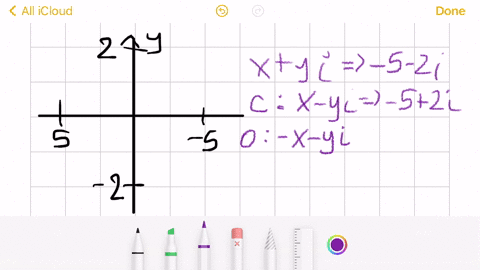 All iCloud
Done
2 y
x+yi=>-5-2i
C: x-yi=>-5+2i
5 -5
O: -x-yi
-2